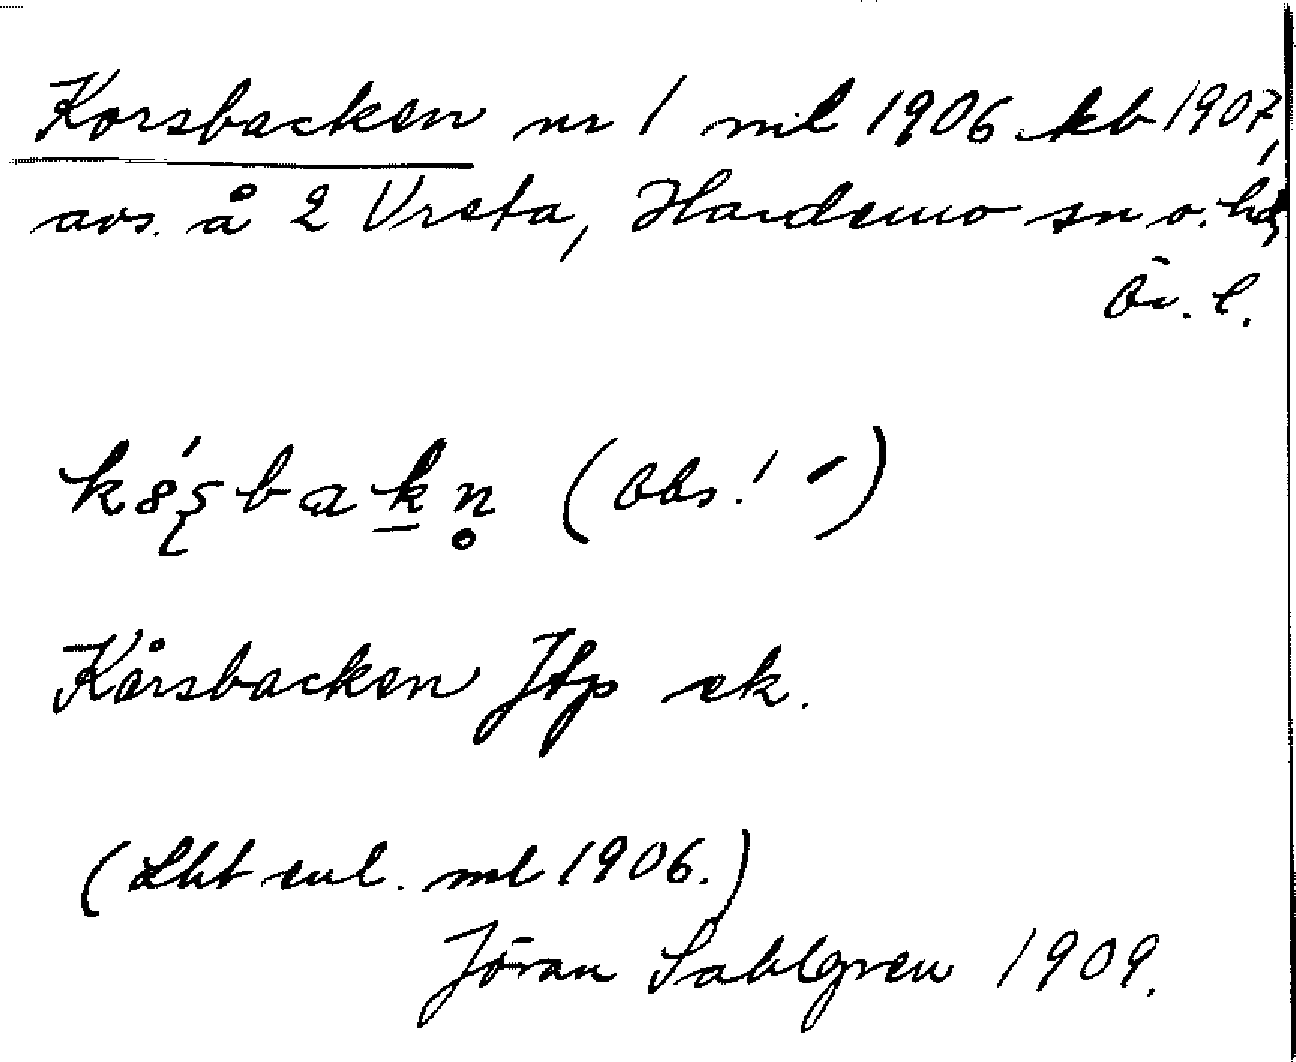 Korsbacken nr 1 ml 1906 kb 1907,
avs. å 2 Vreta, Hardemo sn o. hd,
Ör. l.
k8́ʂbakn̥ (Obs! ´)
Kårsbacken Jtp ek.
(Lht enl. ml 1906.)
Jöran Sahlgren 1909.